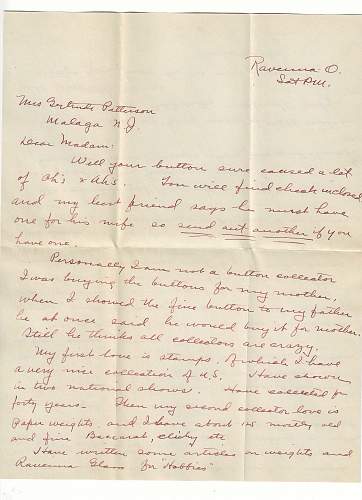 Ravenna O.
Sat P.M.
Mrs Gertrude Patterson
Malaga N.J.
Dear Madam:
Well your button sure caused a lot
of Oh's & Ah's. You will find check inclosed
and my best friend says he must have
one for his wife so send out another if you
have one.
Personally I am not a button collector
I was buying the buttons for my mother,
when I showed the fine button to my father
he at once said he would buy it for mother.
Still he thinks all collectors are crazy.
My first love is stamps. Of which I have
a very nice collection of U.S. Have shown
in two national shows. Have collected for
forty years. Then my second collector love is
Paper weights, and I have about 125 mostly old
and fine Baccarat, clichy etc
Have written some articles on weights and
Ravenna Glass for "Hobbies"